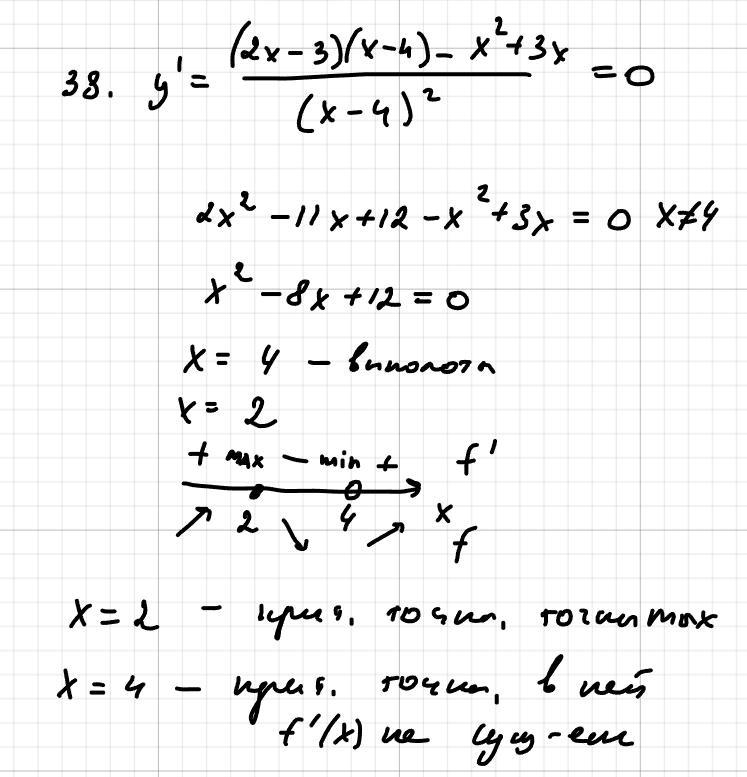 38. y' = ((2x-3)(x-4) - x²+3x) / (x-4)² = 0
2x² -11x+12 -x²+3x = 0 x≠4
x² -8x+12 = 0
x = 4 - выколота
x = 2
+ max - min + f'
2 4 x
f
x = 2 - крит. точка, точка max
x = 4 - крит. точка, в ней
f'(x) не сущ-ет